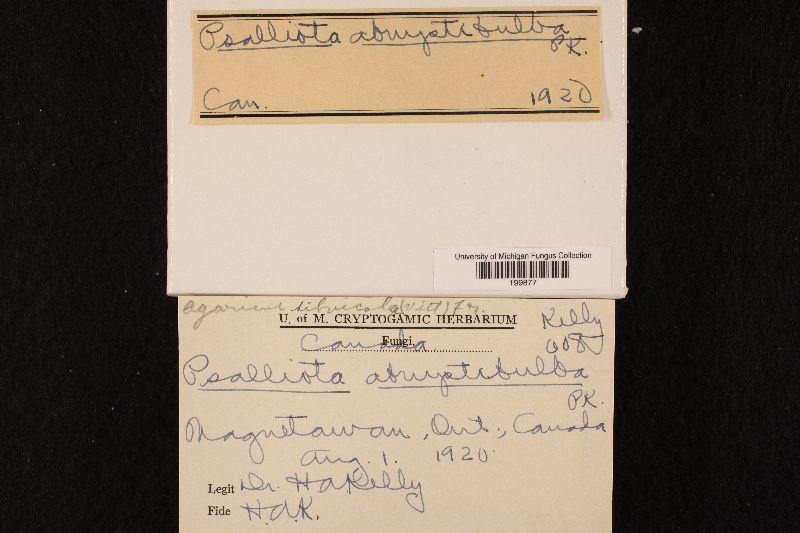 Psalliota abruptibulba
PK.
Can. 1920
University of Michigan Fungus Collection
199877
Agaricus silvicola (Vitt) Fr.
U. of M. CRYPTOGAMIC HERBARIUM
Kelly
Fungi
Canada
Psalliota abruptibulba
PK.
Magnetawan, Ont., Canada
Aug. 1. 1920
Legit Dr. H A Kelly
Fide H.A.K.